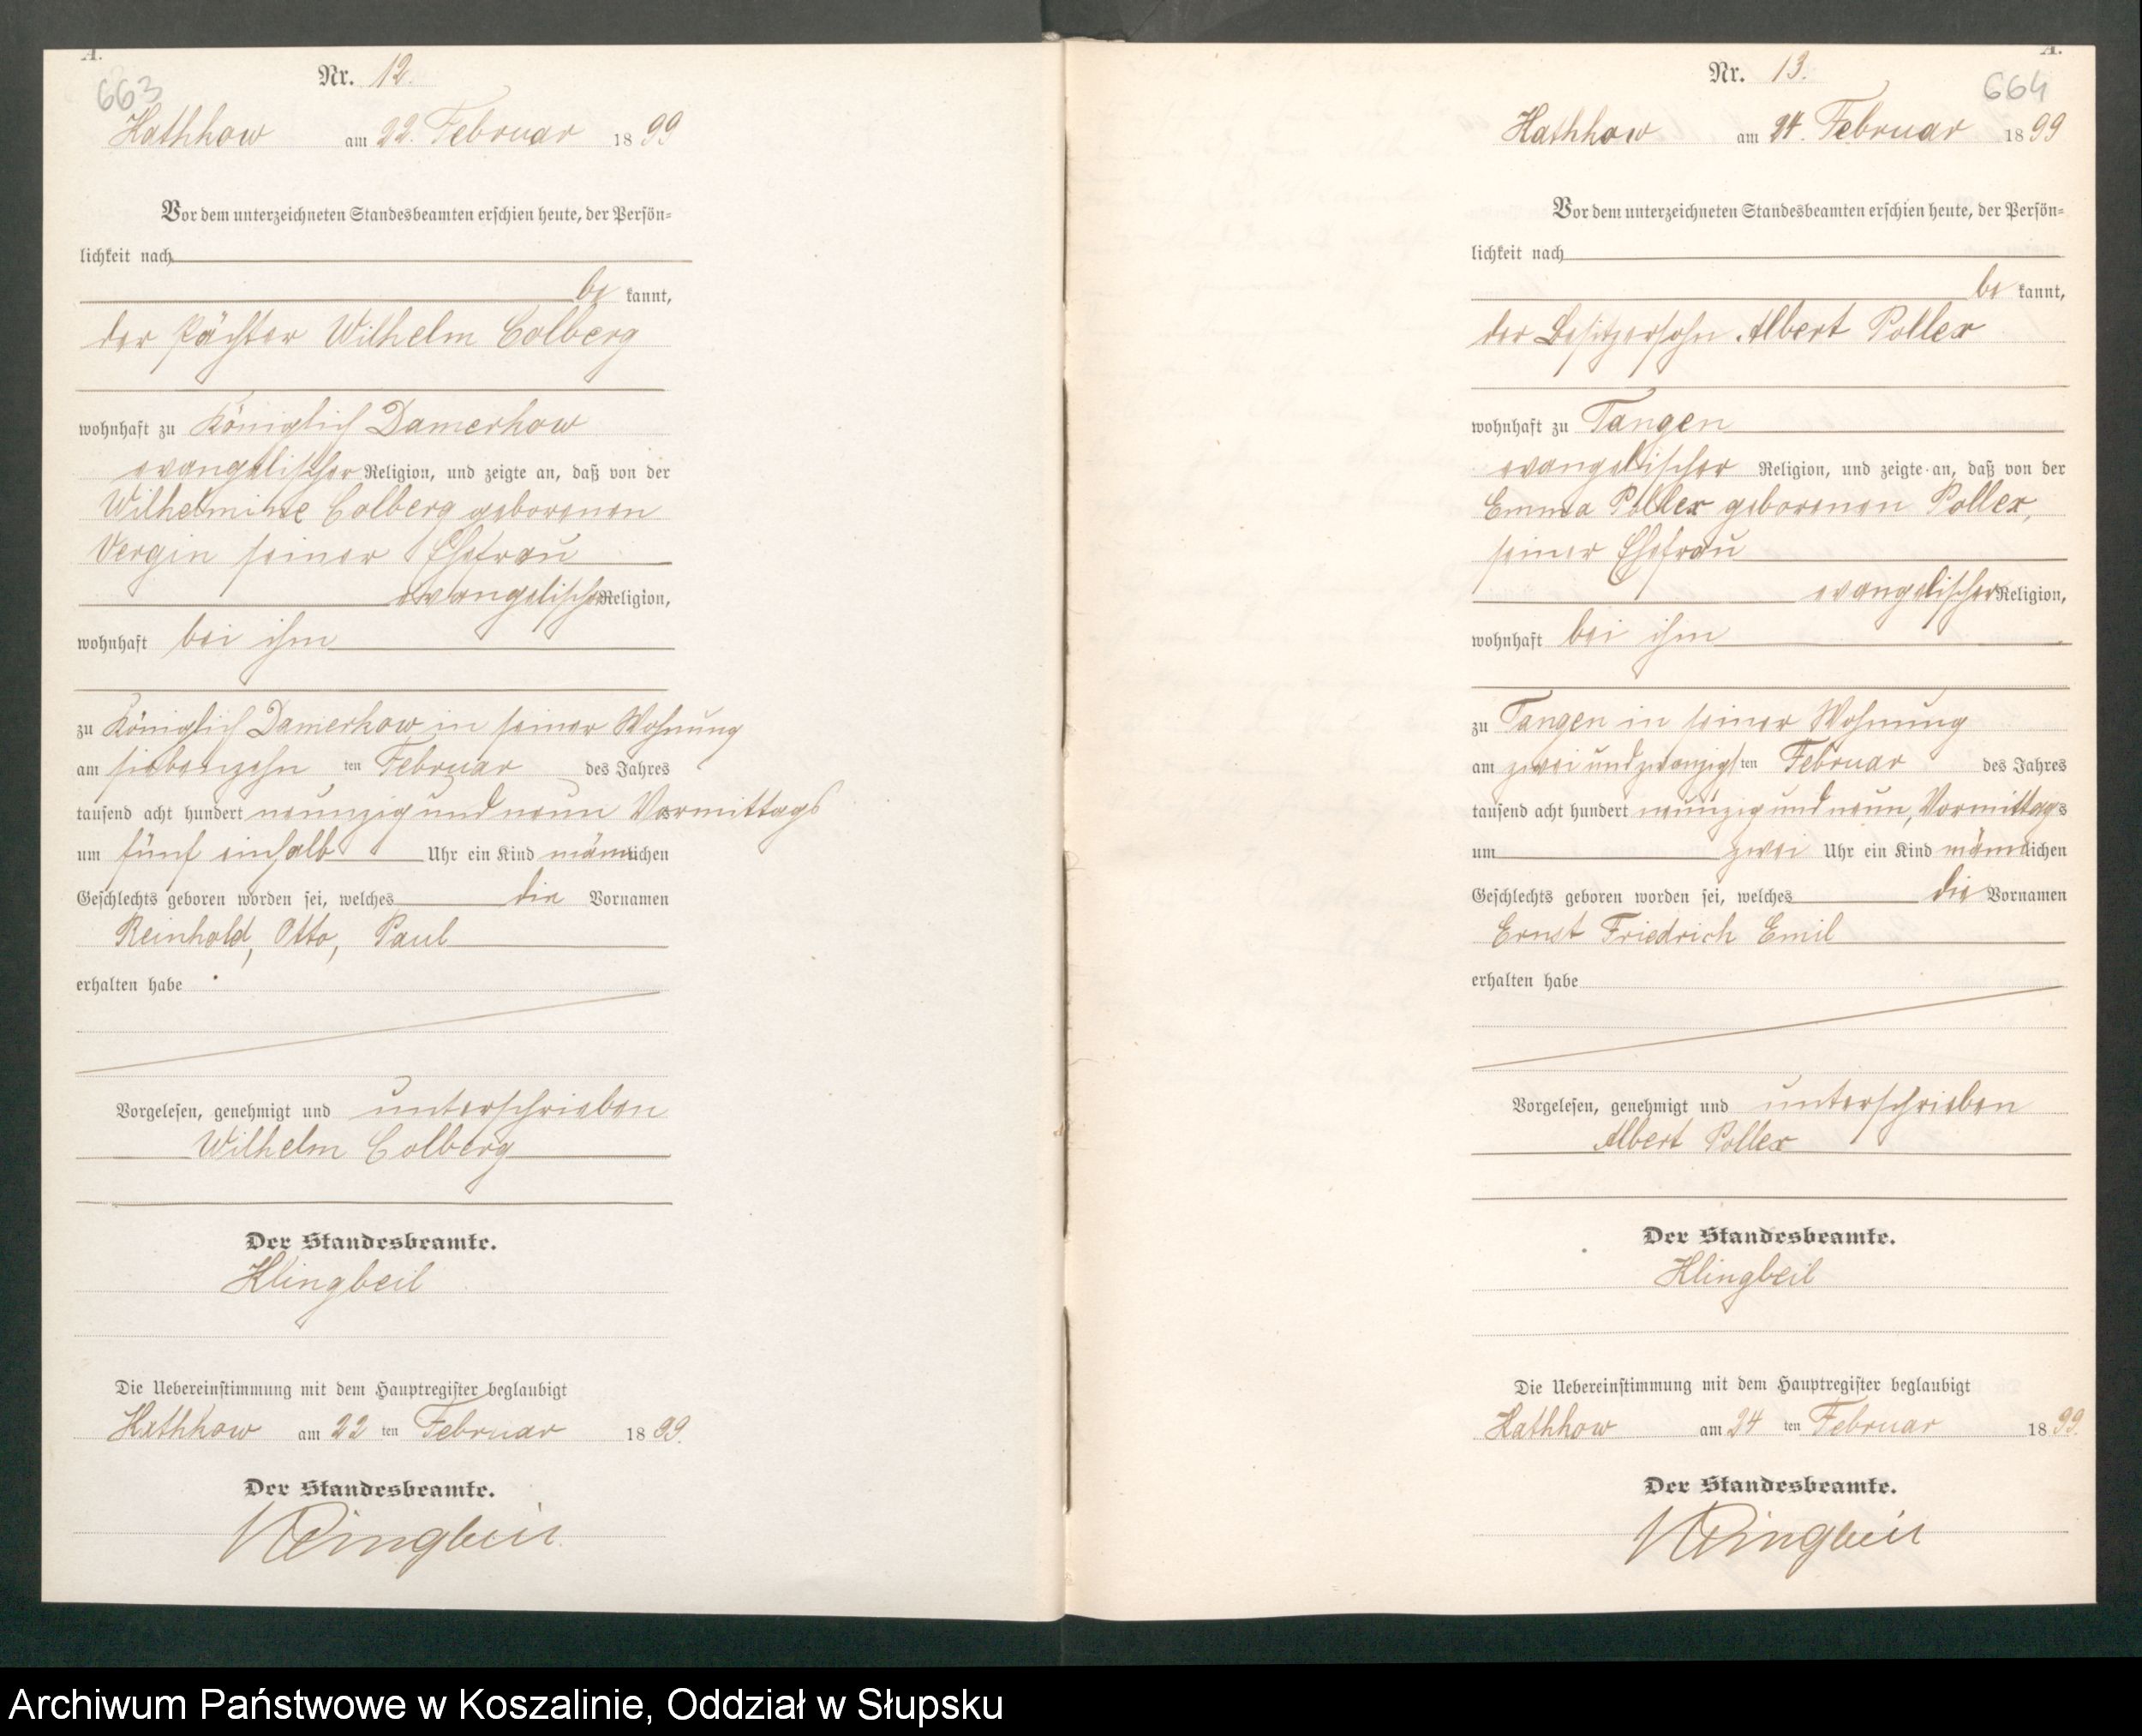 A.
663
Nr. 12.
Kathkow am 22. Februar 1899
Vor dem unterzeichneten Standesbeamten erschien heute, der Persön=
lichkeit nach
be kannt,
der Pächter Wilhelm Colberg
wohnhaft zu Königlich Damerkow
evangelischer Religion, und zeigte an, daß von der
Wilhelmine Colberg geborenen
Vergin seiner Ehefrau
evangelischer Religion,
wohnhaft bei ihm
zu Königlich Damerkow in seiner Wohnung
am siebenzehn ten Februar des Jahres
tausend acht hundert neunzig und neun Vormittags
um fünf einhalb Uhr ein Kind männlichen
Geschlechts geboren worden sei, welches die Vornamen
Reinhold, Otto, Paul
erhalten habe
Vorgelesen, genehmigt und unterschrieben
Wilhelm Colberg
Der Standesbeamte.
Klingbeil
Die Uebereinstimmung mit dem Hauptregister beglaubigt
Kathkow am 22 ten Februar 1899.
Der Standesbeamte.
Klingbeil
A.
664
Nr. 13.
Kathkow am 24. Februar 1899
Vor dem unterzeichneten Standesbeamten erschien heute, der Persön=
lichkeit nach
be kannt,
der Besitzersohn Albert Pollex
wohnhaft zu Tangen
evangelischer Religion, und zeigte an, daß von der
Emma Pollex geborenen Pollex,
seiner Ehefrau
evangelischer Religion,
wohnhaft bei ihm
zu Tangen in seiner Wohnung
am zwei und zwanzigs ten Februar des Jahres
tausend acht hundert neunzig und neun, Vormittags
um zwei Uhr ein Kind männlichen
Geschlechts geboren worden sei, welches die Vornamen
Ernst Friedrich Emil
erhalten habe
Vorgelesen, genehmigt und unterschrieben
Albert Pollex
Der Standesbeamte.
Klingbeil
Die Uebereinstimmung mit dem Hauptregister beglaubigt
Kathkow am 24 ten Februar 1899.
Der Standesbeamte.
Klingbeil
Archiwum Państwowe w Koszalinie, Oddział w Słupsku